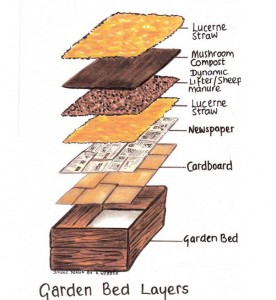 Lucerne
Straw
Mushroom
Compost
Dynamic
Lifter/Sheep
manure
Lucerne
Straw
Newspaper
Cardboard
Garden Bed
Garden Bed Layers